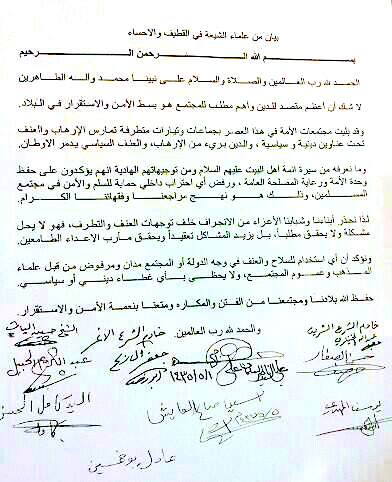 بيان من علماء الشيعة في القطيف والاحساء
بسم الله الرحمن الرحيم
الحمد لله رب العالمين والصلاة والسلام على نبينا محمد وآله الطاهرين
لا شك أن أعظم مقصد للدين وأهم مطلب للمجتمع هو بسط الأمن والاستقرار في البلاد.
وقد بليت مجتمعات الأمة في هذا العصر بجماعات وتيارات متطرفة تمارس الإرهاب والعنف
تحت عناوين دينية وسياسية ، والدين بريء من الإرهاب، والعنف السياسي يدمر الأوطان.
وما نعرفه من سيرة ائمة اهل البيت عليهم السلام ومن توجيهاتهم الهادية انهم يؤكدون على حفظ
وحدة الأمة ورعاية المصلحة العامة ، ورفض أي احتراب داخلي حماية للسلم والأمن في مجتمع
المسلمين، وذلك هو نهج مراجعنا وفقهائنا الكرام.
لذا نحذر أبناءنا وشبابنا الأعزاء من الانجراف خلف توجهات العنف والتطرف، فهو لا يحل
مشكلة ولا يحقق مطلباً، بل يزيد المشاكل تعقيداً ويحقق مآرب الاعداء الطامعين.
ونؤكد أن أي استخدام للسلاح والعنف في وجه الدولة أو المجتمع مدان ومرفوض من قبل علماء
المذهب وعموم المجتمع، ولا يحظى بأي غطاء ديني أو سياسي.
حفظ الله بلادنا ومجتمعنا من الفتن والمكاره ومتعنا بنعمة الأمن والاستقرار.
والحمد لله رب العالمين.
خادم الشرع الشريف
حسن الصفار
جعفر الربح
عبد الكريم الحبيل
١٤٣٥/٥/١
السيد كامل الحسن
يوسف المهدي
عادل بو خمسين